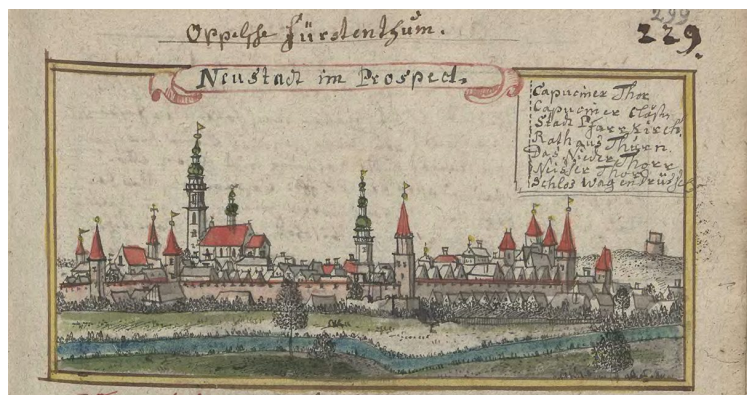 299
Oppelsche Fürstenthum.
229.
Neustadt im Prospect.
Capuciner Thor
Capuciner Closter
Stadt Pfarrkirch
Rathaus Thurn
Das Nieder Thorr
Neisser Thor
Schlos Wagendrüssel